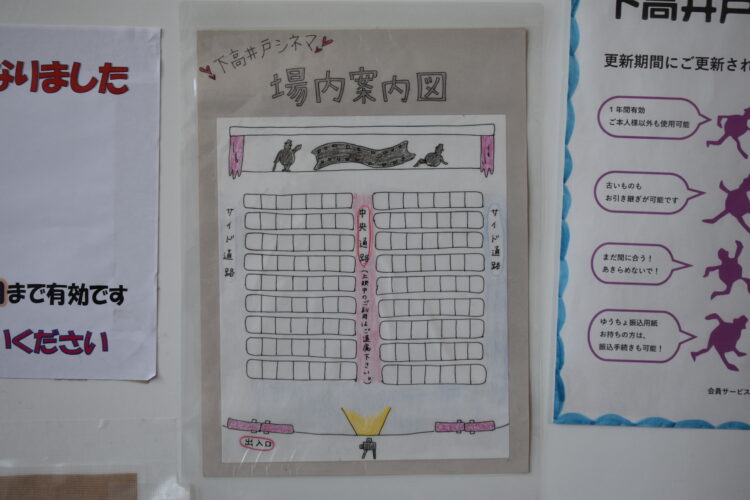 なりました
まで有効です
いください
下高井戸シネマ
場内案内図
サイド通路
中央通路
(上映中のご利用はご遠慮下さい。)
サイド通路
出入口
下高井戸
更新期間にご更新され
1年間有効
ご本人様以外も使用可能
古いものも
お引き継ぎが可能です
まだ間に合う!
あきらめないで!
ゆうちょ振込用紙
お持ちの方は、
振込手続きも可能!
会員サービス